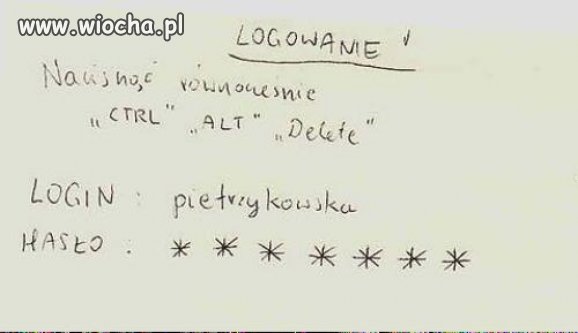 www.wiocha.pl
LOGOWANIE
Nacisnąć równocześnie
„CTRL" „ALT" „Delete"
LOGIN : pietrzykowska
HASŁO : * * * * * * *